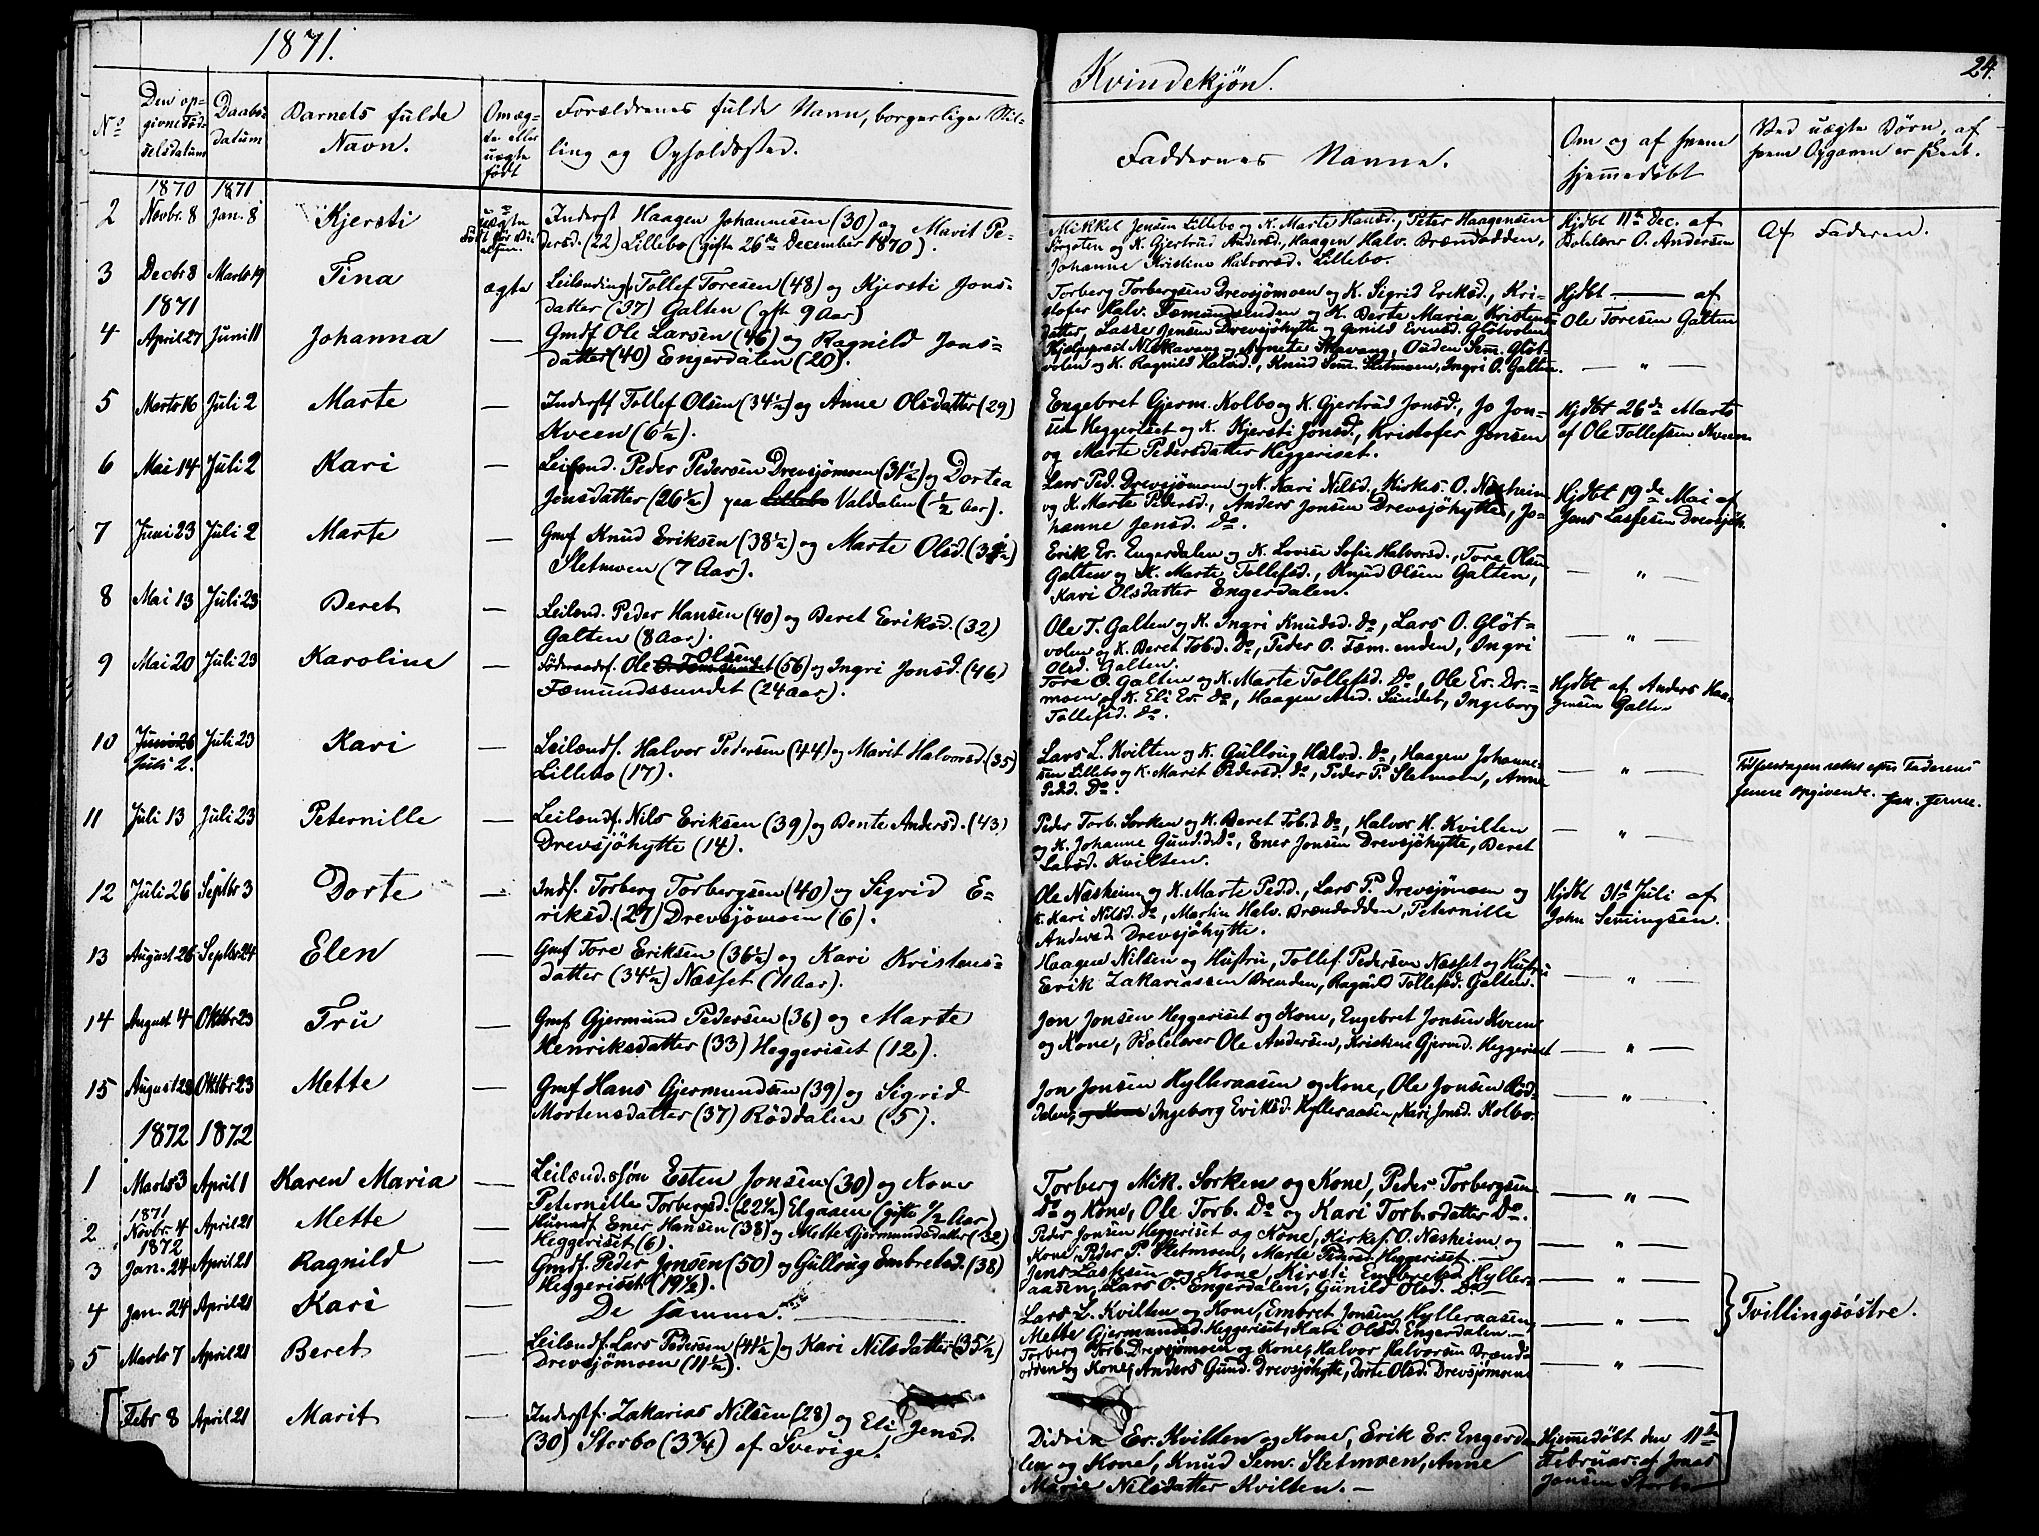 1871.
Kvindekjøn.
24.
No
Den op-
givne Fød-
selsdatum
Daabs-
datum
Barnets fulde
Navn.
Om æg-
te eller
uægte
født
Forældrenes fulde Navn, borgerlige Stil-
ling og Opholdssted.
Faddernes Navne.
Om og af hvem
hjemmedøbt
Ved uægte Børn, af
hvem Opgaven er skeet.
1870 1871
2 Novbr. 8 Jan. 8 Kjersti uægte
Inderst Haagen Johannesen (30) og Marit Pe-
dersd. (22) Lillebo (gifte 26de December 1870).
Mikkel Jensen Lillebo og K. Marte Hansd., Peter Haagensen
og K. Gjertrud Andersd., Haagen Halv. Brændodden,
Johanne Kristine Halvorsd. Lillebo.
Hjdbt 11te Dec. af
Skolelærer O. Andersen
Af Faderen.
3 Decbr 8 Marts 19 Tina ægte
Leilending Tollef Toresen (48) og Kjersti Jons-
datter (37) Galten (gft 9 Aar)
Torberg Torbergsen Drevsjømoen og K. Sigrid Eriksd., Kri-
stofer Halv. Fæmundsenden og K. Berte Maria Kristens-
datter, Lasse Jensen Drevsjøhytte og Gunild Evensd. Gløtvolen
Hjdbt — af
Ole Toresen Galten
1871
4 April 27 Juni 11 Johanna —
Gmdf Ole Larsen (46) og Ragnild Jons-
datter (40) Engerdalen (20).
og Agnete Skavang, Ouden Sem. Gløt-
volen og K. Ragnild Halvd., Knud Sem. Sletmoen, Ingri O. Galten.
— " —
5 Marts 16 Juli 2 Marte —
Inderstf Tollef Olsen (34½) og Anne Olsdatter (29)
Kveen (6½).
Engebret Gjerm. Kolbo og K. Gjertrud Jonsd., Jo Jon-
sen Heggeriset og K. Kjersti Jonsd., Kristofer Jonsen
og Marte Pedersdatter Heggeriset.
Hjdbt 26de Marts
af Ole Tollefsen Kveen
6 Mai 14 Juli 2 Kari —
Leilend. Peder Pedersen Drevsjømoen (31½) og Dortea
Jonsdatter (26½) paa Lillebo Valdalen (½ Aar).
Lars Ped. Drevsjømoen og K. Kari Nilsd., Kirkes. O. Næsheim
og K. Marte Pedersd., Anders Jonsen Drevsjøhytte, Jo-
hanne Jensd. Do.
Hjdbt 19de Mai af
Jens Lassesen Drevsjøh.
7 Juni 23 Juli 2 Marte —
Gmf Knud Eriksen (38½) og Marte Olsd.
Sletmoen (7 Aar).
Erik Er. Engerdalen og K. Lovise Sofie Halvorsd., Tore Olsen
Galten og K. Marte Tollefsd., Knud Olsen Galten,
Kari Olsdatter Engerdalen.
— " —
8 Mai 13 Juli 23 Beret —
Leilend. Peder Hansen (40) og Beret Eriksd. (32)
Galten (8 Aar).
Ole T. Galten og K. Ingri Knudsd. Do, Lars O. Gløt-
volen og K. Beret Tob.d. Do, Peder O. Fæm.enden, Ingri
Olsd. Galten.
— " —
9 Mai 20 Juli 23 Karoline —
Føderaadsf. Ole Olsen (56) og Ingri Jonsd. (46)
Fæmundssundet (24 Aar).
Tore O. Galten og K. Marte Tollefsd. Do, Ole Er. Dr.=
moen og K. Eli Er. Do, Haagen And. Sundet, Ingeborg
Tollefsd. Do.
Hjdbt af Anders Haa-
gensen Galten
10 Juni 26 Juli 2. Juli 23 Kari —
Leilændf. Halvor Pedersen (44) og Marit Halvorsd. (35)
Lillebo (17).
Lars L. Kvilten og K. Gulloug Halvd. Do, Haagen Johanne-
sen Lillebo og K. Marit Pedersd. Do, Peder P. Sletmoen, Anne
Pedd. Do.
— " —
Fødselsdagen rettet efter Faderens
senere opgivende.
11 Juli 13 Juli 23 Peternille —
Leilændf. Nils Eriksen (39) og Bente Andersd. (43)
Drevsjøhytte (14).
Peder Torb. Sorken og K. Beret Tob.d. Do, Halvor H. Kvilten
og K. Johanne Gund.d. Do, Ener Jonsen Drevsjøhytte, Beret
Larsd. Kvilten.
— " —
12 Juli 26 Septbr 3 Dorte —
Indf. Torberg Torbergsen (40) og Sigrid E-
riksd. (27) Drevsjømoen (6).
Ole Næsheim og K. Marte Ped.d., Lars P. Drevsjømoen og
K. Kari Nilsd. Do, Martin Halv. Brændodden, Peternille
Andersd. Drevsjøhytte.
Hjdbt 31te Juli af
John Semingsen.
13 August 26 Septbr 24 Elen —
Gmf Tore Eriksen (36½) og Kari Kristens-
datter (34½) Næsset (11 Aar).
Haagen Nilsen og Hustru, Tollef Pedersen Næsset og Hustru
Erik Zakariassen Brenden, Ragnild Tollefsd. Galten.
— " —
14 August 4 Oktbr 23 Fru —
Gmf Gjermund Pedersen (36) og Marte
Henriksdatter (33) Heggeriset (12).
Jon Jonsen Heggeriset og Kone, Engebret Jonsen Kveen
og Kone, Skolelærer Ole Andersen, Kristine Gjermd. Heggeriset
— " —
15 August 28 Oktbr 23 Mette —
Gmf Hans Gjermundsen (39) og Sigrid
Mortensdatter (37) Røddalen (5).
Jon Jonsen Hylleraasen og Kone, Ole Jonsen Rød-
dalen, og Kone Ingeborg Eriksd. Hylleraasen, Kari Jonsd. Kolbo.
— " —
1872 1872
1 Marts 3 April 1 Karen Maria —
Leilændssøn Esten Jonsen (30) og Kone
Peternille Torbergsd. (22½) Elgaaen (gifte ½ Aar)
Torberg Mik. Sorken og Kone, Peder Torbergsen
Do og Kone, Ole Torb. Do og Kari Torb.sdatter Do.
— " —
1871
2 Novbr. 4 April 21 Mette —
Husmdf. Ener Hansen (38) og Mette Gjermundsdatter (32)
Heggeriset (6).
Peder Jonsen Heggeriset og Kone, Kirkes. O. Næsheim og
Kone, Peder P. Sletmoen, Marte Pedersd. Heggeriset. —
— " —
1872
3 Jan. 24 April 21 Ragnild —
Gmdf. Peder Jonsen (50) og Gulloug Embretsd. (38)
Heggeriset (19½).
Jens Lassesen og Kone, Kirsti Embretsd. Hyller-
aasen, Lars O. Engerdalen, Gunild Olsd. Do —
— " —
4 Jan. 24 April 21 Kari —
De samme. —
Lars L. Kvilten og Kone, Embret Jonsen Hylleraasen,
Mette Gjermundsd. Heggeriset, Kari Olsd. Engerdalen. —
— " —
Tvillingsøstre.
5 Marts 7 April 21 Beret —
Leilændf. Lars Pedersen (41½) og Kari Nilsdatter (35½)
Drevsjømoen (11½).
Torberg Torb. Drevsjømoen og Kone, Halvor Halvorsen Brænd-
odden og Kone, Anders Gund. Drevsjøhytte, Dorte Olsd. Drevsjømoen
— " —
Febr 8 April 21 Marit —
Inderstf. Zakarias Nilsen (28) og Eli Jensd.
(30) Storbo (3¾) af Sverige.
Didrik Er. Kvilten og Kone, Erik Er. Engerda-
len og Kone, Knud Sem. Sletmoen, Anne
Marie Nilsdatter Kvilten. —
Hjemmedøbt den 11te
Februar af Jonas
Jonsen Storbo